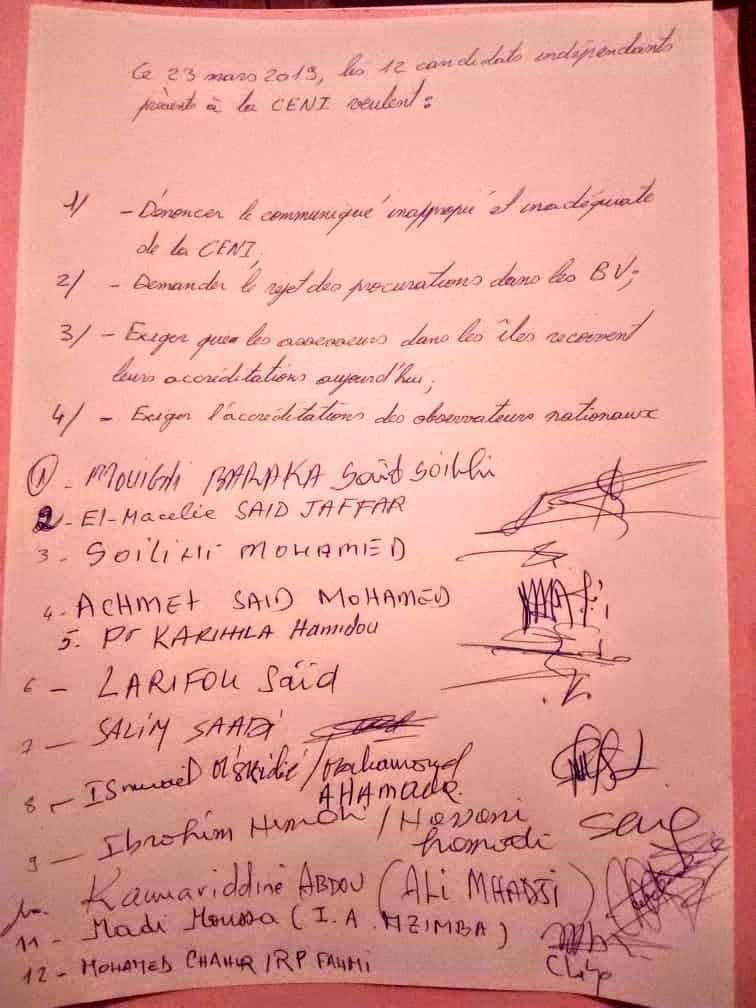 Ce 23 mars 2019, les 12 candidats indépendants
présents à la CENI veulent :
1/ - Dénoncer le communiqué inapproprié et inadéquate
de la CENI,
2/ - Demander le rejet des procurations dans les BV;
3/ - Exiger que les assesseurs dans les îles recoivent
leurs accréditations aujourd'hui;
4/ - Exiger l'accréditations des observateurs nationaux
1 - MOUIGNI BARAKA Saïd Soilihi
2 - El-Macelie SAID JAFFAR
3 - SOILIHI MOHAMED
4 - ACHMET SAID MOHAMED
5. Pr KARIHILA Hamidou
6 - LARIFOU Saïd
7 - SALIM SAADI
8 - Ismael /Mohamoud
AHAMADA
9 - Ibrahim / Hassani
hamadi
10. Kamariddine ABDOU (ALI MHADJI)
11 - Madi Moussa (I.A. MZIMBA)
12 - MOHAMED CHAHER / RP FAHMI